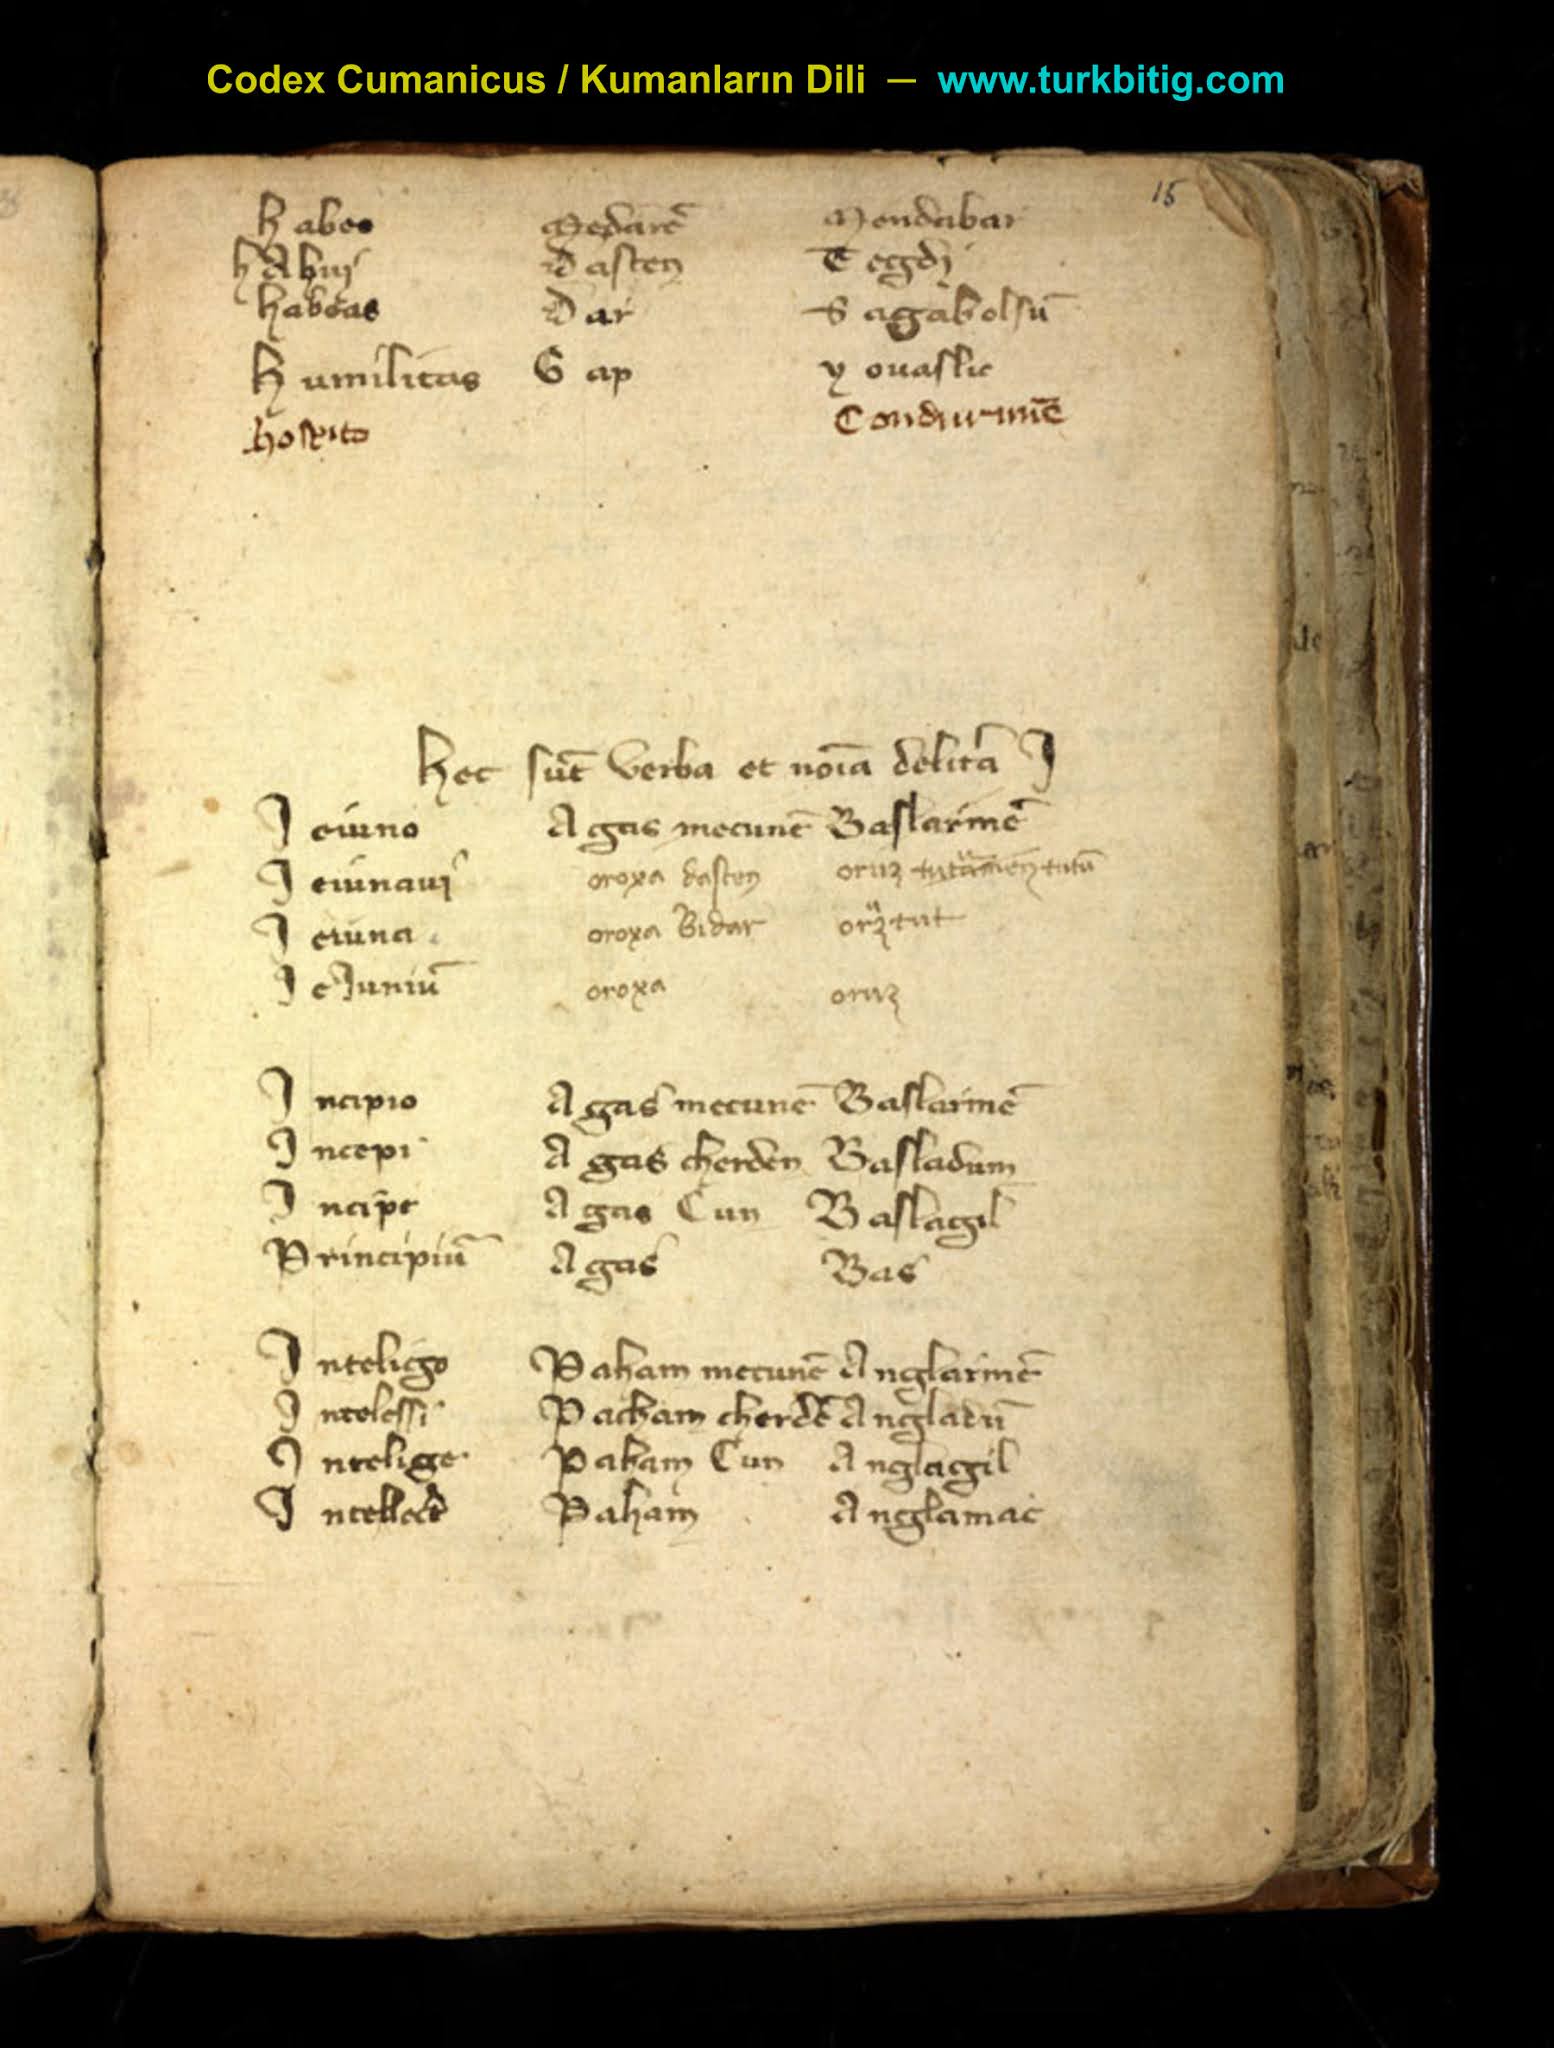 Codex Cumanicus / Kumanların Dili — www.turkbitig.com
15
habeo Medarẽ Mendabar
habui dasten Tegdi
habeas Dar Sagabolsũ
humilitas Gap youaslic
hospito Condurmẽ
hec sũt verba et noĩa delitã I
Ieiuno Agas mecunẽ Baslarmẽ
Ieiunaui oroxa dasten oruz tutũ
Ieiuna oroxa Bidar oruz tut
IeJuniũ oroxa oruz
Incipio Agas mecunẽ Baslarmẽ
Incepi Agas cherden Basladum
Incipe Agas Cun Baslagil
Principiũ Agas Bas
Inteligo Paham mecunẽ Anglarmẽ
Intelessi Pacham cherdẽ Angladũ
Intelige Paham Cun Anglagil
Paham Anglamac